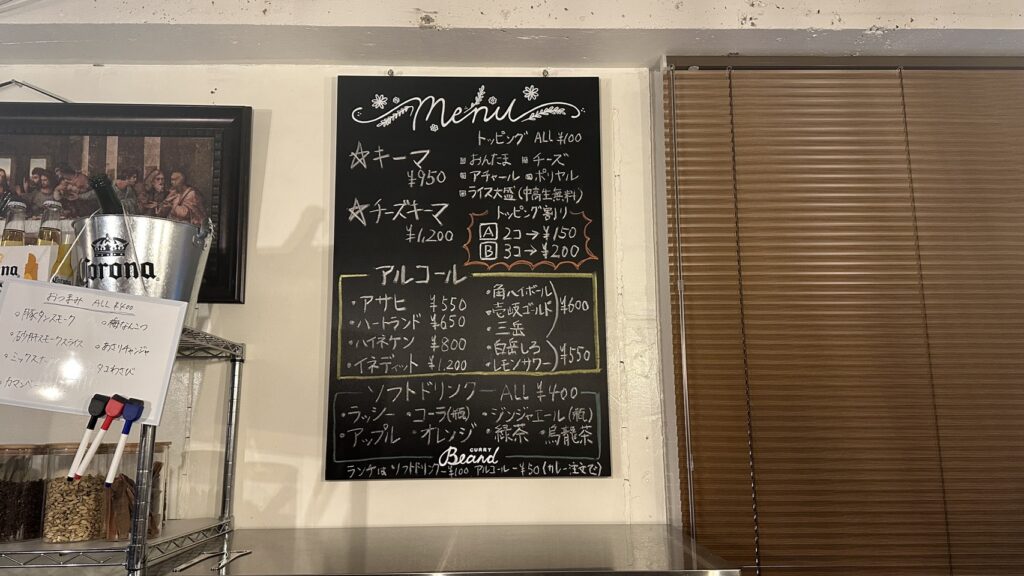 Menu
トッピング ALL ¥100
☆キーマ
¥950
おんたま チーズ
アチャール ポリヤル
ライス大盛(中高生無料)
☆チーズキーマ
¥1,200
トッピング割り
A 2コ→¥150
B 3コ→¥200
アルコール
・アサヒ ¥550
・ハートランド ¥650
・ハイネケン ¥800
・イネディット ¥1,200
・角ハイボール
・壱岐ゴールド
・三岳
¥600
・白岳しろ
・レモンサワー
¥550
ソフトドリンク ALL ¥400
・ラッシー ・コーラ(瓶) ・ジンジャエール(瓶)
・アップル ・オレンジ ・緑茶 ・烏龍茶
CURRY
Beard
ランチは ソフトドリンク¥100 アルコール¥50(カレー注文で)
Corona
おつまみ ALL ¥400
・豚タンスモーク
・砂肝スモークスライス
・ミックスナ
・カマンベ
・梅なんこつ
・あさりチャンジャ
・タコわさび